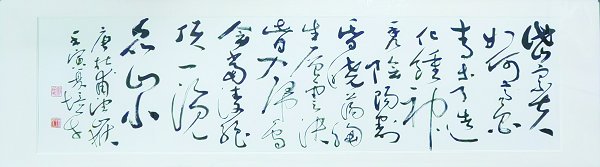 岱宗夫
如何齊魯
青未了造
化鍾神
秀陰陽割
昏曉蕩胸
生層雲決
眥入歸鳥
會當凌絕
頂一覽
眾山小
唐杜甫望嶽
壬寅夏